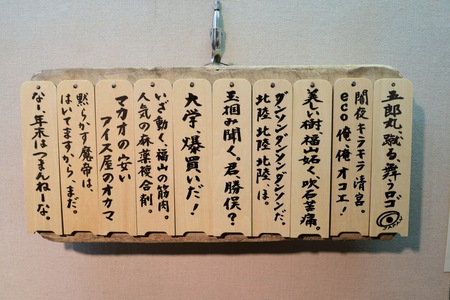 五郎丸、蹴る、舞うロゴ
闇夜キラキラ清宮。
eco 俺 俺 オコエ！
美しい樹、福山妬く、吹石至痛。
ダンソンダンソンダンソンだ。
北陸 北陸 北陸は。
玉掴み聞く。君、勝俣？
大学 爆買いだ！
いざ動く、福山の筋肉。
人気の麻薬複合剤。
マカオの安い
アイス屋のオカマ
黙らかす魔帝は、
はいてますから、まだ。
なー年末はつまんねーな。